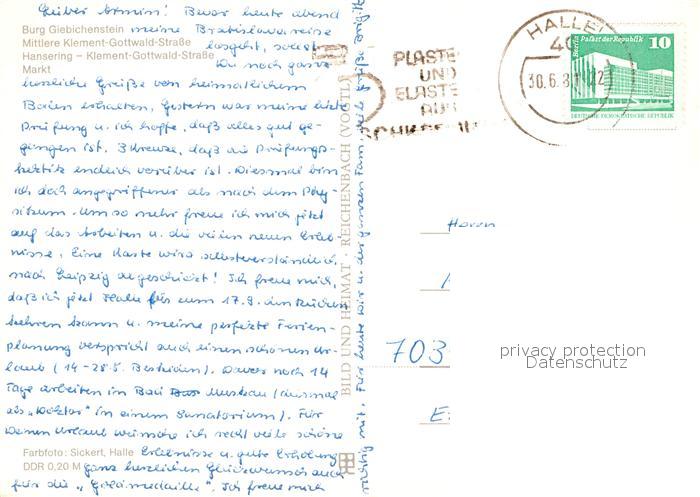 Lieber Armin! Bevor heute abend
meine Bratislavareise
losgeht, sollst
Du noch ganz
herzliche Grüße vom heimatlichen
erhalten. Gestern war meine letzte
Prüfung u. ich hoffe, daß alles gut ge-
gangen ist. 3 Kreuze, daß die Prüfungs-
hektik endlich vorüber ist. Diesmal bin
ich doch angegriffener als nach dem Phy-
sikum. Um so mehr freue ich mich jetzt
auf das Arbeiten u. die vielen neuen Erleb-
nisse. Eine Karte wird selbstverständlich
nach Leipzig abgeschickt! Ich freue mich,
daß ich jetzt Halle bis zum 17.9. den Rücken
kehren kann u. meine perfekte Ferien-
planung verspricht auch einen schönen Ur-
laub (14.-28.8. Bestwien). Davor noch 14
Tage arbeiten im Bad Muskau (diesmal
als „Doktor" in einem Sanatorium). Für
Deinen Urlaub wünsche ich recht viele schöne
Erlebnisse u. gute Erholung
Ganz herzlichen Glückwunsch auch
für die „Goldmedaille". Ich freue mich
richtig mit. Für heute Dir u. der ganzen Fam. viele Grüße Brigitte
Burg Giebichenstein
Mittlere Klement-Gottwald-Straße
Hansering – Klement-Gottwald-Straße
Markt
Farbfoto: Sickert, Halle
DDR 0,20 M
BILD UND HEIMAT · REICHENBACH (VOGTL
PLASTE
UND
ELASTE
AUS
SCHKOPAU
HALLE
40
30.6.8
Berlin Palast der Republik
10
DEUTSCHE DEMOKRATISCHE REPUBLIK
Herrn
703
privacy protection
Datenschutz